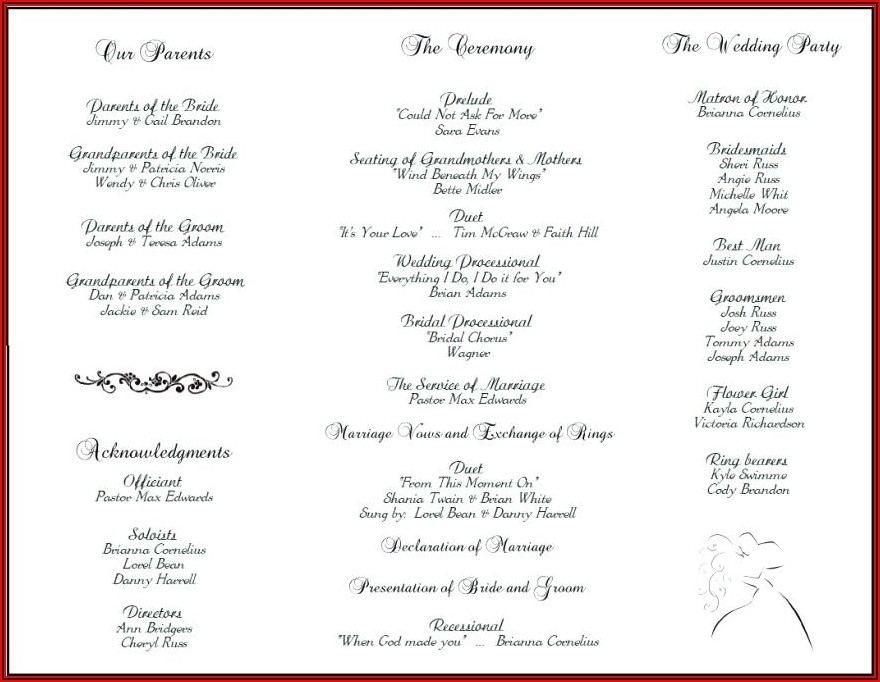 Our Parents
Parents of the Bride
Jimmy & Gail Brandon
Grandparents of the Bride
Jimmy & Patricia Norris
Wendy & Chris Oliver
Parents of the Groom
Joseph & Teresa Adams
Grandparents of the Groom
Dan & Patricia Adams
Jackie & Sam Reid
Acknowledgments
Officiant
Pastor Max Edwards
Soloists
Brianna Cornelius
Lorel Bean
Danny Harrell
Directors
Ann Bridgers
Cheryl Russ
The Ceremony
Prelude
"Could Not Ask For More"
Sara Evans
Seating of Grandmothers & Mothers
"Wind Beneath My Wings"
Bette Midler
Duet
"It's Your Love" ... Tim McGraw & Faith Hill
Wedding Processional
"Everything I Do, I Do it for You"
Brian Adams
Bridal Processional
"Bridal Chorus"
Wagner
The Service of Marriage
Pastor Max Edwards
Marriage Vows and Exchange of Rings
Duet
"From This Moment On"
Shania Twain & Brian White
Sung by: Lorel Bean & Danny Harrell
Declaration of Marriage
Presentation of Bride and Groom
Recessional
"When God made you" ... Brianna Cornelius
The Wedding Party
Matron of Honor
Brianna Cornelius
Bridesmaids
Sheri Russ
Angie Russ
Michelle Whit
Angela Moore
Best Man
Justin Cornelius
Groomsmen
Josh Russ
Joey Russ
Tommy Adams
Joseph Adams
Flower Girl
Kayla Cornelius
Victoria Richardson
Ring bearers
Kyle Swimme
Cody Brandon